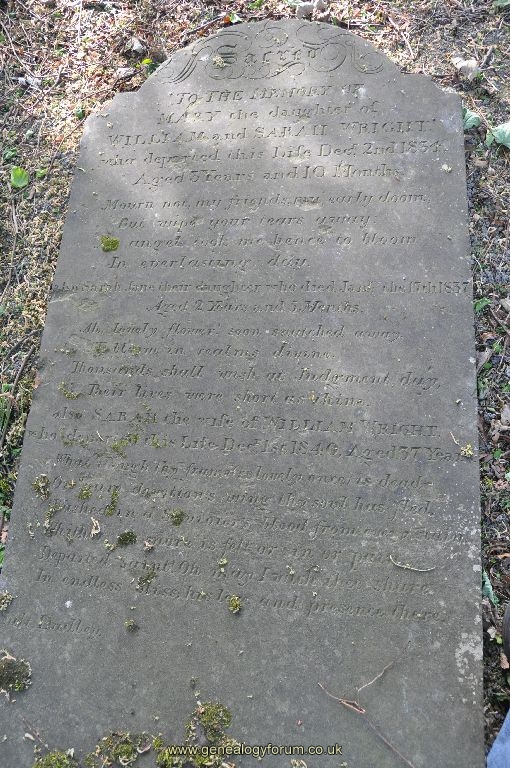 Sacred
TO THE MEMORY OF
MARY the daughter of
WILLIAM and SARAH WRIGHT
who departed this Life Decr 2nd 1834.
Aged 3 Years and 10 Months.
Mourn not, my friends, my early doom,
But wipe your tears away
angel took me hence to bloom
In everlasting day.
Sarah Jane their daughter who died Jany the 17th 1837
Aged 2 Years and 5 Months.
Ah, lovely flower soon snatched away.
To bloom in realms divine.
Thousands shall wish at Judgment day,
Their lives were short as thine.
also SARAH the wife of WILLIAM WRIGHT.
who departed this Life Decr 1st 1846, Aged 37 Years
What though thy frame once is dead
On devotions wing thy soul has fled,
Washed in blood from
is felt or sin or pain
Departed saint! Oh may I with thee share
In endless bliss, his love and presence there.
Dudley.
www.genealogyforum.co.uk